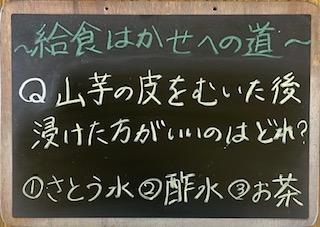 ～給食はかせへの道～
Q 山芋の皮をむいた後
浸けた方がいいのはどれ?
①さとう水 ②酢水 ③お茶